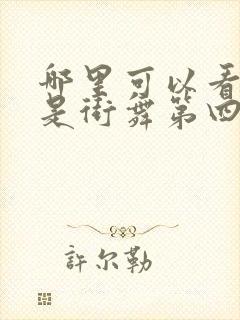 哪里可以看
是街舞第四
許尔勒